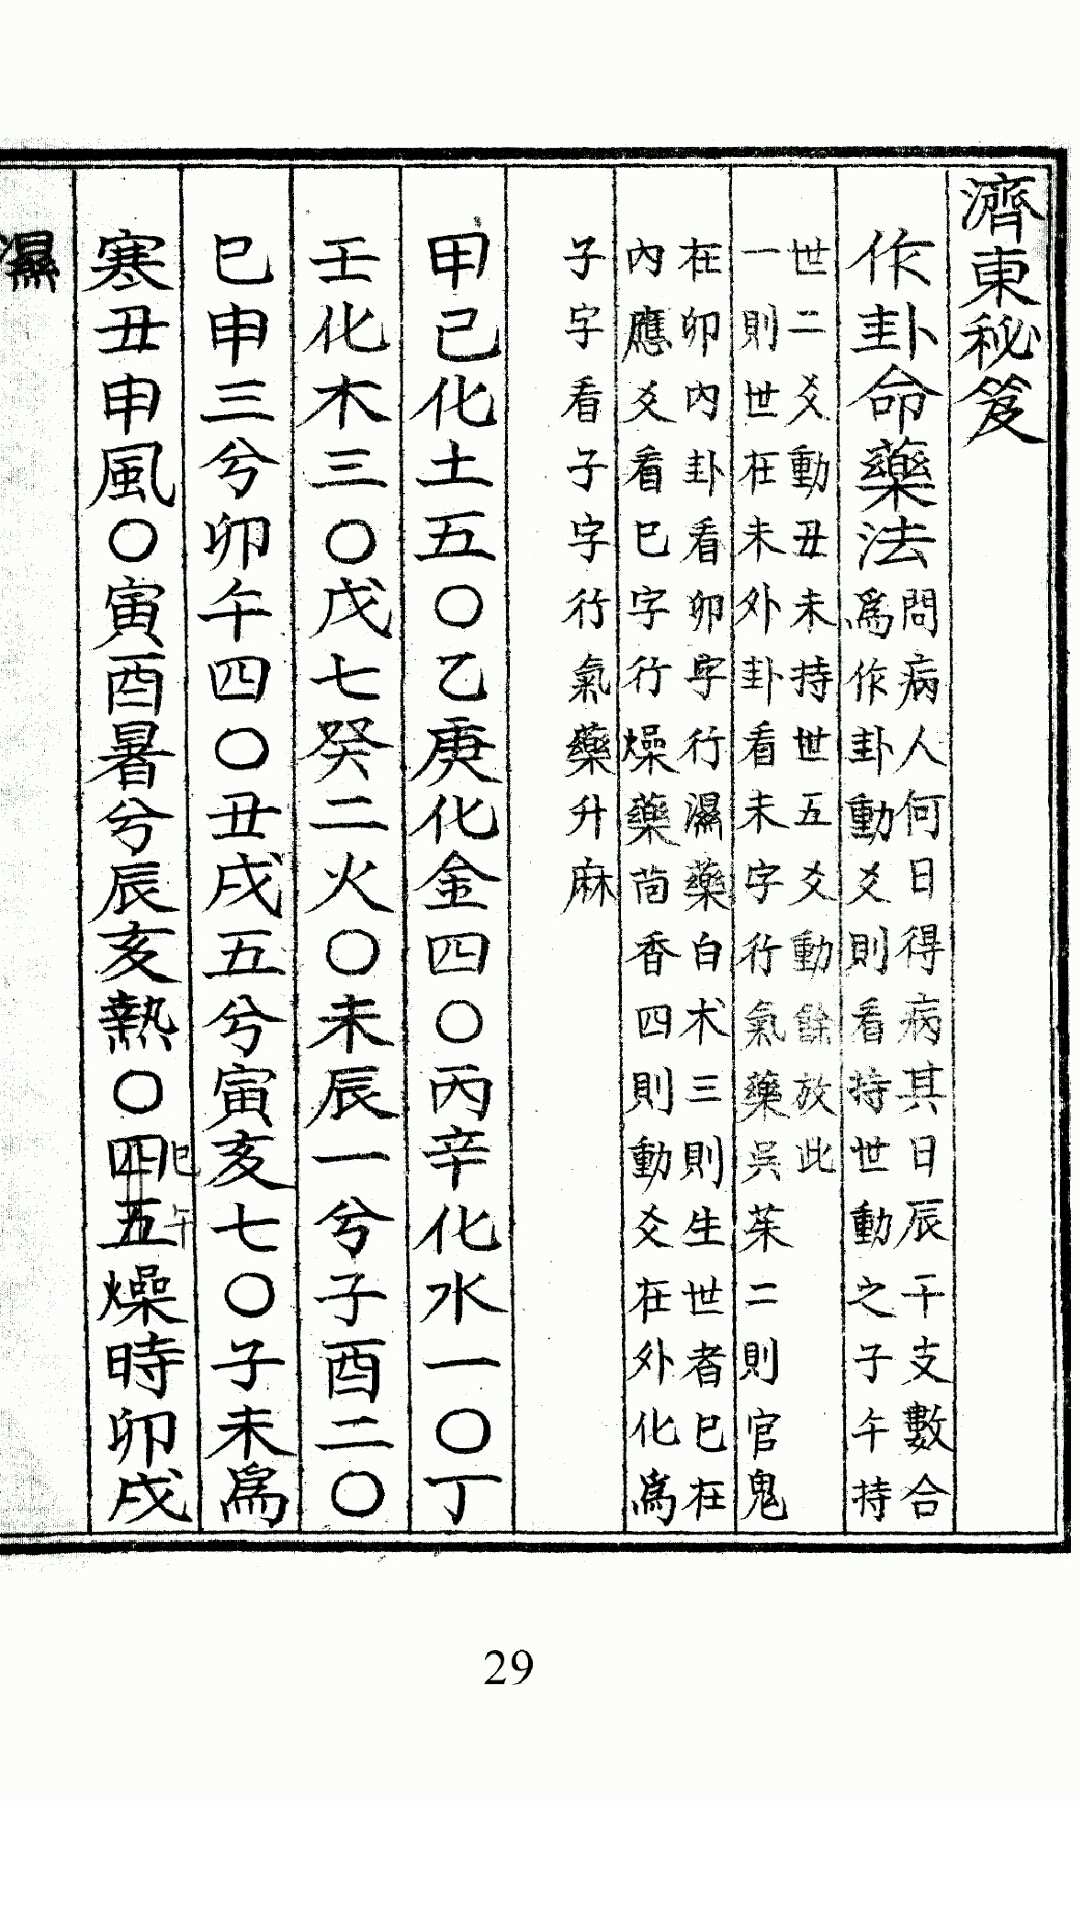 濟東秘笈
作卦命藥法
問病人何日得病其日辰干支數合
爲作卦動爻則看持世動之子午持
世二爻動丑未持世五爻動餘放此
一則世在未外卦看未字行氣藥吳茱二則官鬼
在卯內卦看卯字行濕藥白术三則生世者巳在
內應爻看巳字行燥藥茴香四則動爻在外化為
子字看子字行氣藥升麻
甲己化土五〇乙庚化金四〇丙辛化水一〇丁
壬化木三〇戊七癸二火〇未辰一兮子酉二〇
巳申三兮卯午四〇丑戌五兮寅亥七〇子未為
寒丑申風〇寅酉暑兮辰亥熱〇四五燥時卯戌
巳午
濕
29